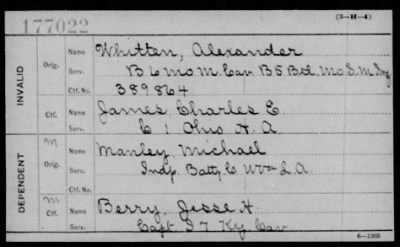 177022
(3-H-4)
INVALID
Orig.
Name Whitten, Alexander
Serv. B 6 Mo M. Cav B 5 Btl. Mo S. M. Inf
Ctf. No. 389864
Ctf.
Name James, Charles E
Serv. C 1 Ohio H. A
DEPENDENT
Orig.
Name Manley, Michael
Serv. Indp. Batty C WVa L. A.
Ctf. No.
Ctf.
Name Berry, Jesse H.
Serv. Capt. I 7 Ky Cav
6-1303